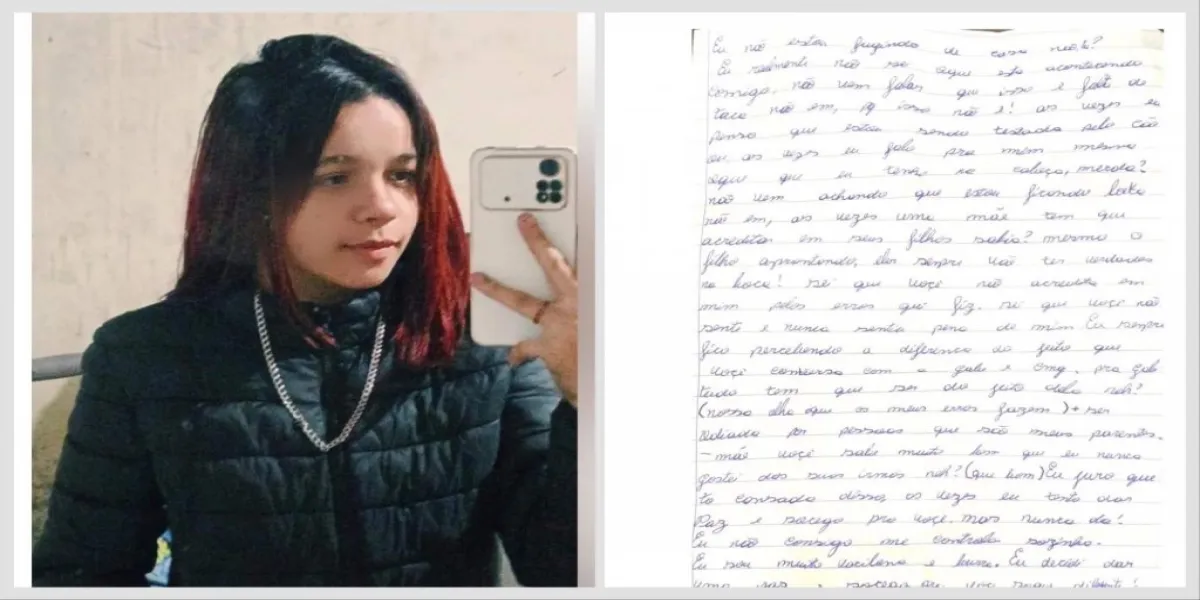 Eu não estou fugindo de casa neh?
Eu realmente não sei oque esta acontecendo
comigo, não vem falar que isso é falta de
taca não em, pq isso não é! as vezes eu
penso que estou sendo testada pelo cão
ou as vezes eu falo pra mim mesma
oque que eu tenho na cabeça, merda?
não vem achando que estou ficando loka
não em, as vezes uma mãe tem que
acreditar em seus filhos sabia? mesmo o
filho aprontando, eles sempre vão ter verdades
na boca! sei que você não acredita em
mim pelos erros que fiz. sei que você não
sente e nunca sentiu pena de mim Eu sempre
fico percebendo a diferença do jeito que
você conversa com a gabi e cmg. pra gabi
tudo tem que ser do jeito dela neh?
(nossa olha oque os meus erros fazem) + ser
odiada por pessoas que são meus parentes.
- mãe você sabe muito bem que eu nunca
gostei dos seus irmos neh? (que bom) Eu juro que
to cansada disso, as vezes eu tento dar
Paz e socego pra você. mas nunca da!
Eu não consigo me controla sozinha.
Eu sou muito vacilona e burra. Eu decidi dar